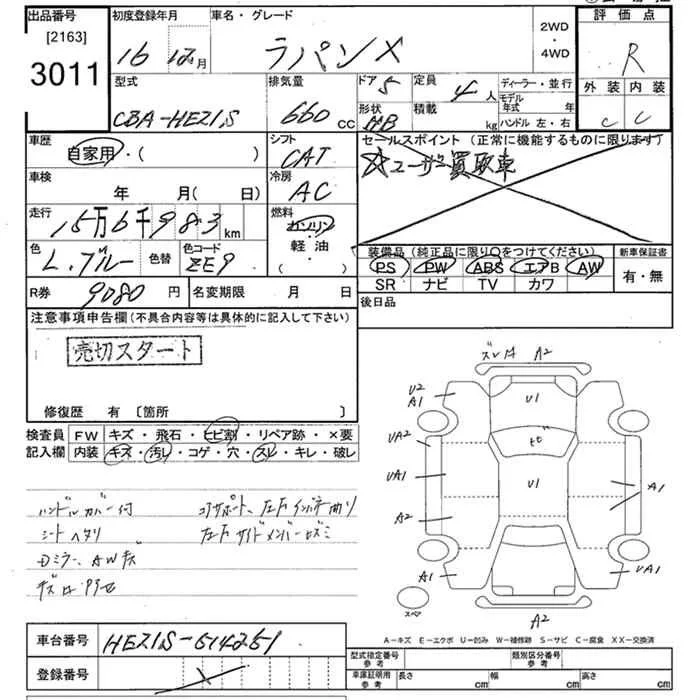 出品番号 初度登録年月 車名・グレード 2WD・4WD 評価点
[2163]
3011
16 12月 ラパン X R
型式 排気量 ドア 5 定員 4人 ディーラー・並行 外装 内装
CBA-HE21S 660 cc 形状 HB 積載 kg モデル年式 年 ハンドル 左・右 C C
車歴 シフト セールスポイント(正常に機能するものに限ります)
自家用・( ) CAT ☆ユーザー買取車
車検 冷房
年 月(日) AC
走行 燃料
15万6千983km ガソリン
色 色替 色コード 軽油・ 装備品(純正品に限り○をつけてください) 新車保証書
L.ブルー ZE9 ( ) PS PW ABS エアB AW 有・無
SR ナビ TV カワ
R券 9080円 名変期限 月 日 後日品
注意事項申告欄(不具合内容等は具体的に記入して下さい)
売切スタート
修復歴 有 〔箇所 〕
検査員 FW キズ・飛石・ヒビ割・リペア跡・×要
記入欄 内装 キズ・汚レ・コゲ・穴・スレ・キレ・破レ
ハンドルカバー付 コアサポート、左F インパネ曲り
シートヘタリ 左F サイドメンバー
Dミラー、AWキズ
ズレ A2
U2
A1 U1
UA2 ヒビ
UA1 U1 A1
A2
A1 UA1
スペア A2
A-キズ E-エクボ U-凹み W-補修跡 S-サビ C-腐食 XX-交換済
車台番号 HE21S-614251
型式指定番号 参考 類別区分番号 参考
登録番号
車庫証明用 参考 長さ cm 幅 cm 高さ cm